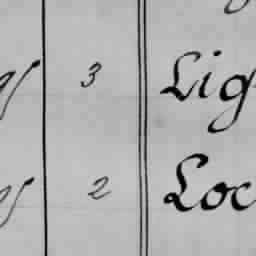 3 Lig
2 Loc